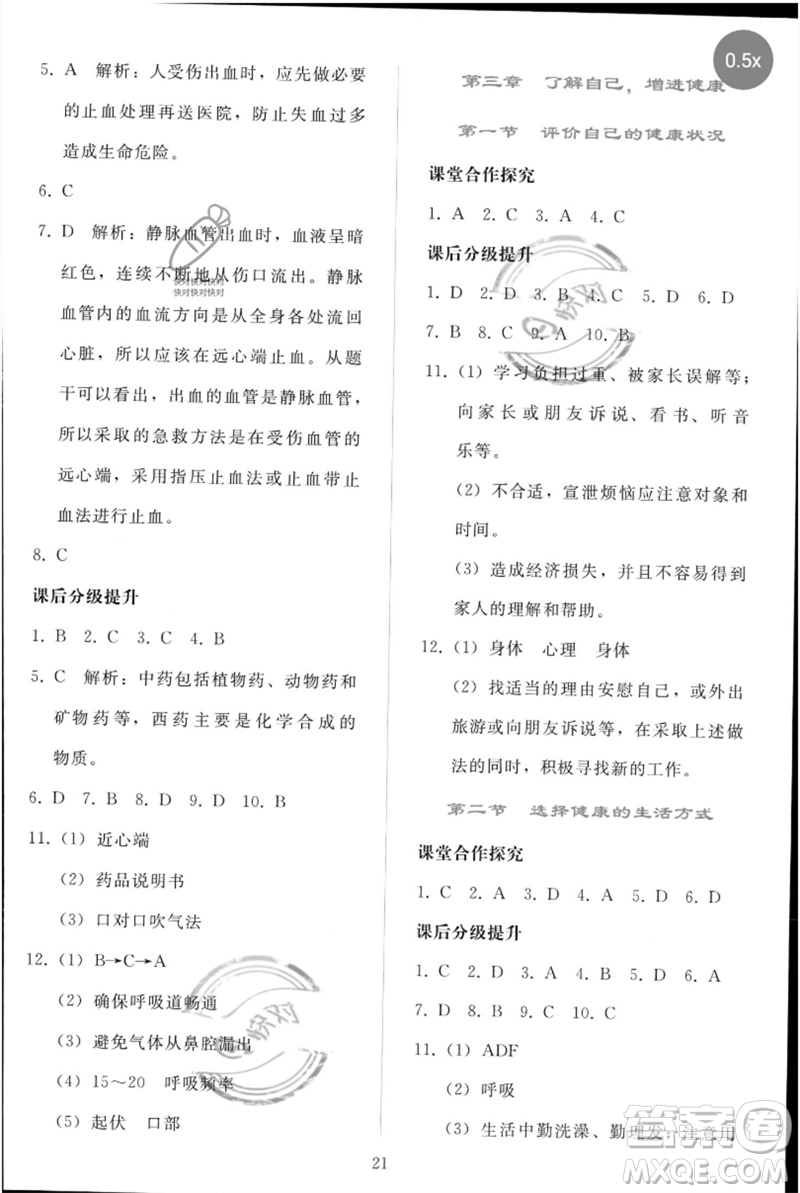 5. A 解析：人受伤出血时，应先做必要
的止血处理再送医院，防止失血过多
造成生命危险。
6. C
7. D 解析：静脉血管出血时，血液呈暗
红色，连续不断地从伤口流出。静脉
血管内的血流方向是从全身各处流回
心脏，所以应该在远心端止血。从题
干可以看出，出血的血管是静脉血管，
所以采取的急救方法是在受伤血管的
远心端，采用指压止血法或止血带止
血法进行止血。
8. C
课后分级提升
1. B 2. C 3. C 4. B
5. C 解析：中药包括植物药、动物药和
矿物药等，西药主要是化学合成的
物质。
6. D 7. B 8. D 9. D 10. B
11.（1）近心端
（2）药品说明书
（3）口对口吹气法
12.（1）B→C→A
（2）确保呼吸道畅通
（3）避免气体从鼻腔漏出
（4）15～20 呼吸频率
（5）起伏 口部
第三章 了解自己，增进健康
第一节 评价自己的健康状况
课堂合作探究
1. A 2. C 3. A 4. C
课后分级提升
1. D 2. D 3. B 4. C 5. C 6. D
7. B 8. C 9. A 10. B
11.（1）学习负担过重、被家长误解等；
向家长或朋友诉说、看书、听音
乐等。
（2）不合适，宣泄烦恼应注意对象和
时间。
（3）造成经济损失，并且容易得到
家人的理解和帮助。
12.（1）身体 心理 身体
（2）找适当的理由安慰自己，或外出
旅游或向朋友诉说等，在采取上述做
法的同时，积极寻找新的工作。
第二节 选择健康的生活方式
课堂合作探究
1. C 2. A 3. D 4. A 5. D 6. D
课后分级提升
1. C 2. D 3. D 4. B 5. D 6. A
7. D 8. B 9. C 10. C
11.（1）ADF
（2）呼吸
（3）生活中勤洗澡、勤理发，注意用
21
0.5x
快对快对快对快对
快对快对快对快对
快对
快对
答案圈
MXQE.COM